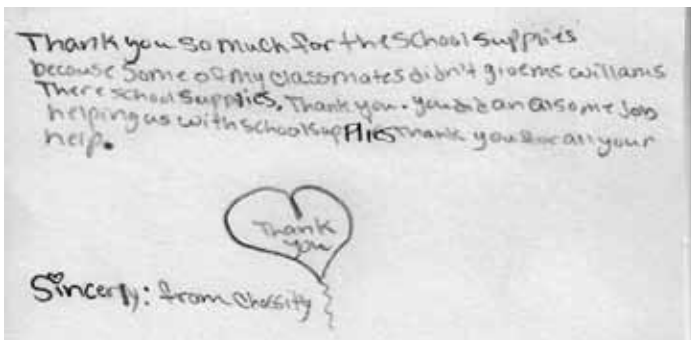 Thank you so much for the School supplies
because some of my classmates didn't give ms willams
There school supplies. Thank you. you did an asome Job
helping us with school supplies Thank you for all your
help.
Thank
you
Sincerly: from Chassity